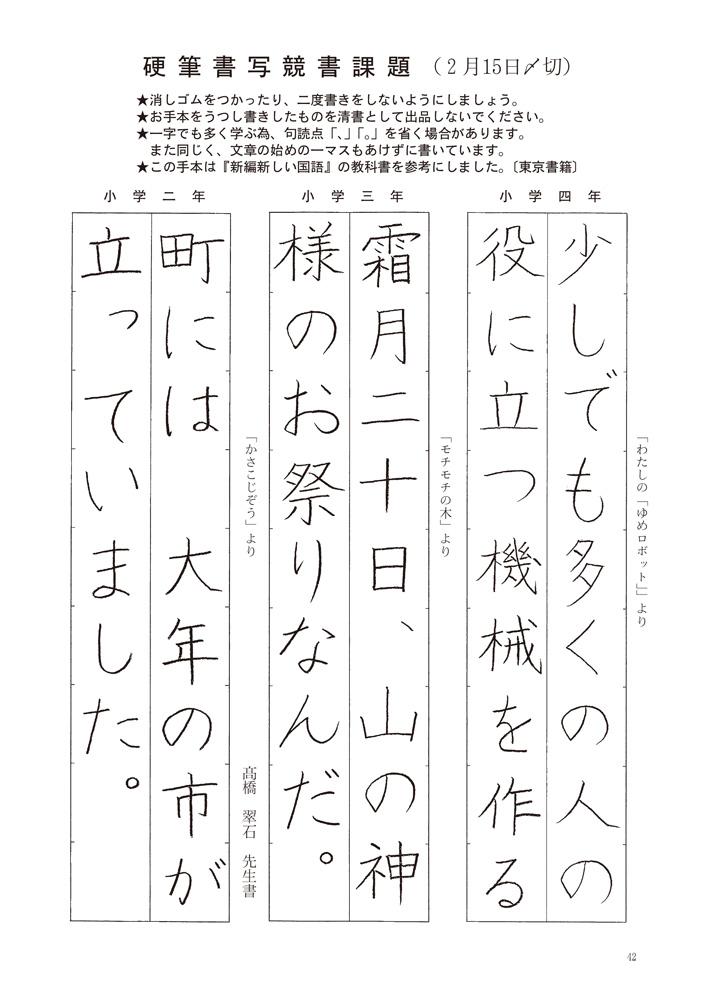 硬筆書写競書課題（２月15日〆切）
★消しゴムをつかったり、二度書きをしないようにしましょう。
★お手本をうつし書きしたものを清書として出品しないでください。
★一字でも多く学ぶ為、句読点「、」「。」を省く場合があります。
また同じく、文章の始めの一マスもあけずに書いています。
★この手本は『新編新しい国語』の教科書を参考にしました。〔東京書籍〕
小学四年
「わたしの「ゆめロボット」」より
少しでも多くの人の
役に立つ機械を作る
小学三年
「モチモチの木」より
霜月二十日、山の神
様のお祭りなんだ。
小学二年
「かさこじぞう」より
町には　大年の市が
立っていました。
髙橋　翠石　先生書
42